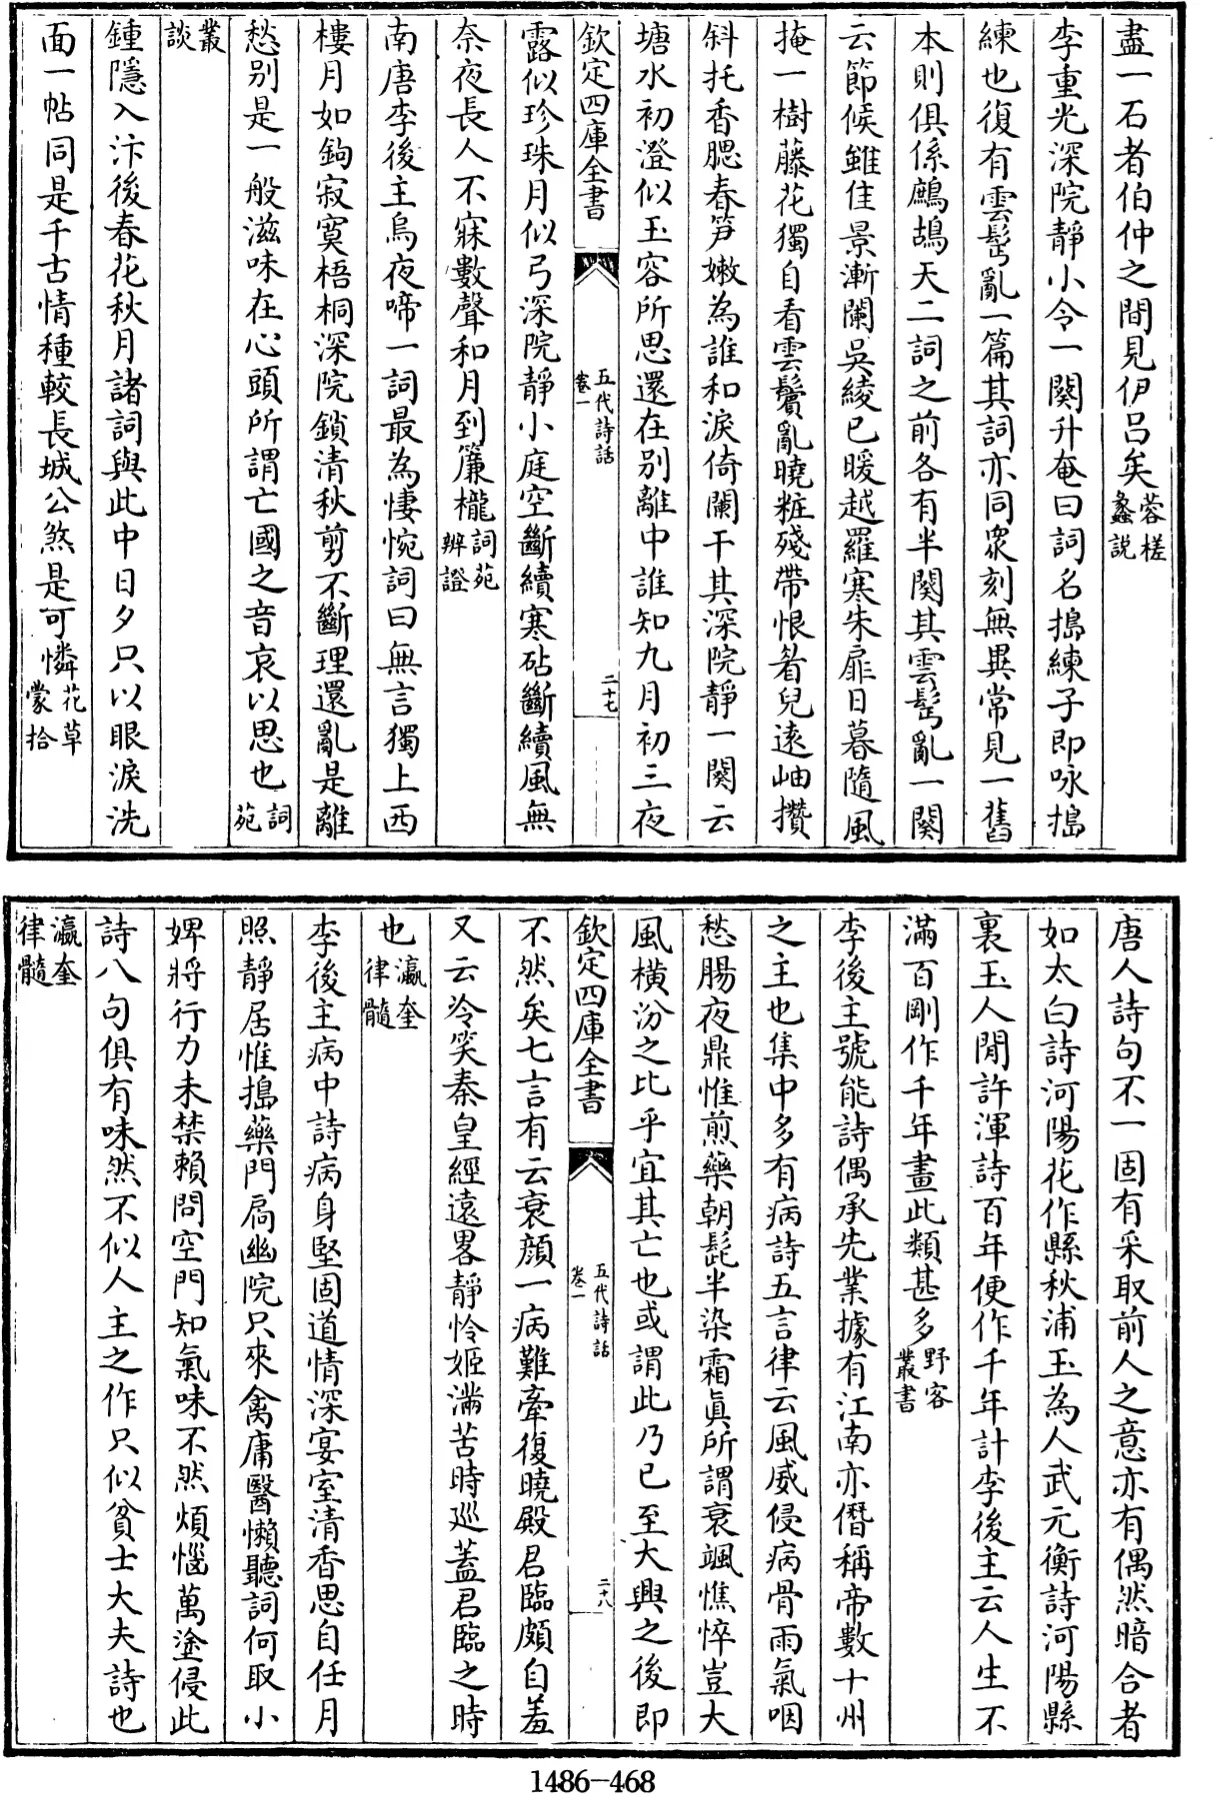 盡一石者伯仲之間見伊吕矣蓉槎蠡説
李重光深院靜小令一闋升奄曰詞名搗練子即咏搗
練也復有雲髩亂一篇其詞亦同衆刻無異常見一舊
本則俱係鷓鴣天二詞之前各有半闋其雲髩亂一闋
云節候雖佳景漸闌吳綾已暖越羅寒朱扉日暮隨風
掩一樹藤花獨自看雲鬢亂曉粧殘帶恨眉兒遠岫攢
斜托香腮春笋嫩為誰和淚倚闌干其深院靜一闋云
塘水初澄似玉容所思還在别離中誰知九月初三夜
欽定四庫全書
五代詩話
卷一
二十七
露似珍珠月似弓深院靜小庭空斷續寒砧斷續風無
奈夜長人不寐數聲和月到簾櫳詞苑辨證
南唐李後主烏夜啼一詞最為悽惋詞曰無言獨上西
樓月如鉤寂寞梧桐深院鎖清秋剪不斷理還亂是離
愁别是一般滋味在心頭所謂亡國之音哀以思也詞苑
叢談
鍾隱入汴後春花秋月諸詞與此中日夕只以眼淚洗
面一帖同是千古情種較長城公煞是可憐花草蒙拾
唐人詩句不一固有采取前人之意亦有偶然暗合者
如太白詩河陽花作縣秋浦玉為人武元衡詩河陽縣
裏玉人閒許渾詩百年便作千年計李後主云人生不
滿百剛作千年畫此類甚多野客叢書
李後主號能詩偶承先業據有江南亦僭稱帝數十州
之主也集中多有病詩五言律云風威侵病骨雨氣咽
愁腸夜鼎惟煎藥朝髭半染霜真所謂衰颯憔悴豈大
風横汾之比乎宜其亡也或謂此乃已至大興之後即
欽定四庫全書
五代詩話
卷一
二十八
不然矣七言有云衰顔一病難牽復曉殿君臨頗自羞
又云冷笑秦皇經遠畧靜怜姬滿苦時廵蓋君臨之時
也瀛奎律髓
李後主病中詩病身堅固道情深宴室清香思自任月
照靜居惟搗藥門扃幽院只來禽庸醫懶聽詞何取小
婢將行力未禁賴問空門知氣味不然煩惱萬塗侵此
詩八句俱有味然不似人主之作只似貧士大夫詩也
瀛奎律髓
1486-468